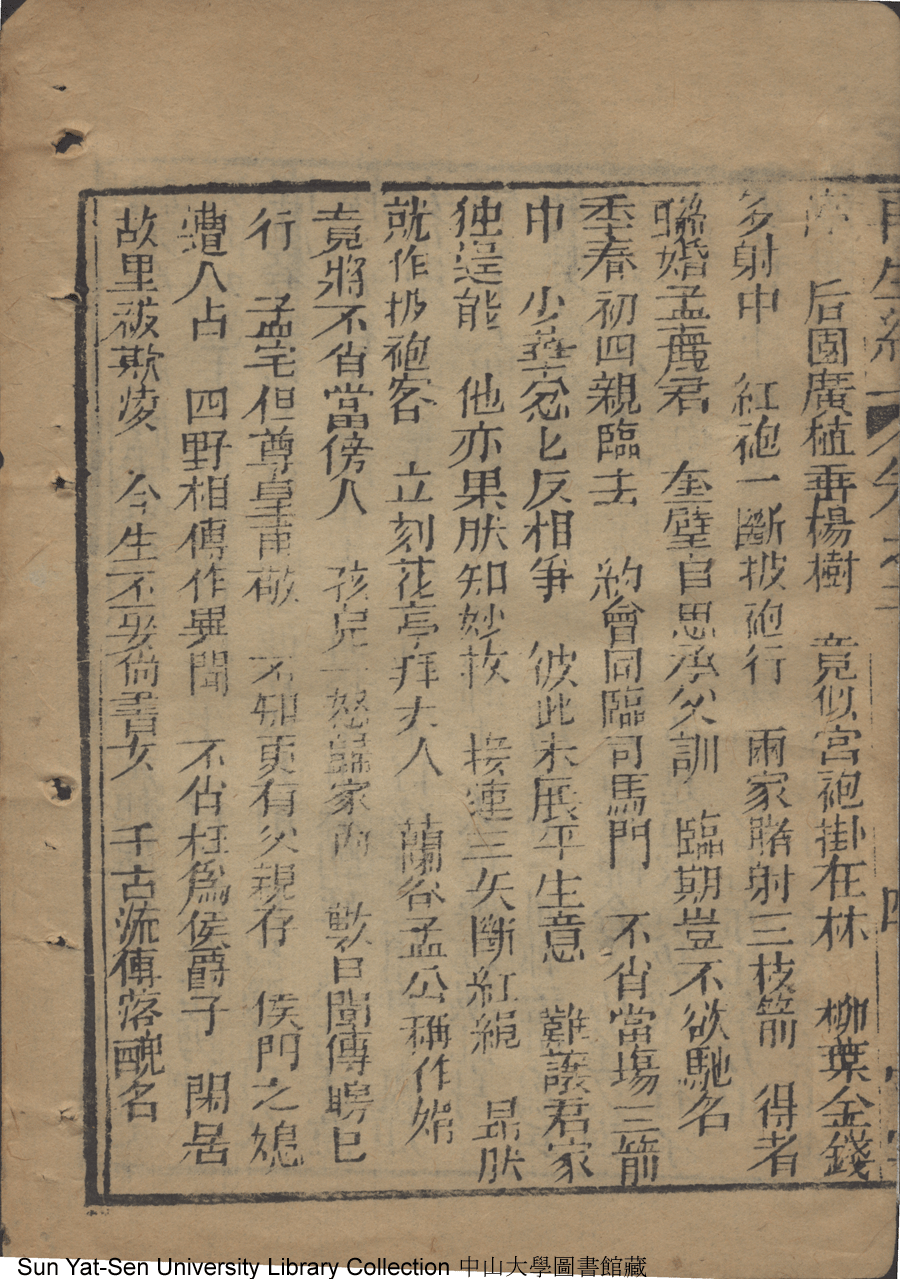 再生緣
添 后園廣植垂楊樹 竟似宮袍掛在林 柳葉金錢
多射中 紅袍一斷披砲行 兩家賭射三枝箭 得者
聯婚孟麗君 奎璧自思承父訓 臨期豈不欲馳名
季春初四親臨去 約會同臨司馬門 不省當塲三箭
中 少華忿匕反相爭 彼此未展平生意 難讓君家
独逞能 他亦果肰知妙技 接連三矢斷紅䋲 昻肰
就作扨袍客 立刻花亭拜大人 蘭谷孟公稱作婿
竟將不省當傍人 孩兒一怒歸家內 數日聞傳聘已
行 孟宅但尊皇甫敬 不知更有父親存 侯門之媳
遭人占 四野相傳作異聞 不佔枉爲侯爵子 閑居
故里被欺凌 今生不娶尙書女 千古流傳落醜名
Sun Yat-Sen University Library Collection 中山大學圖書館藏